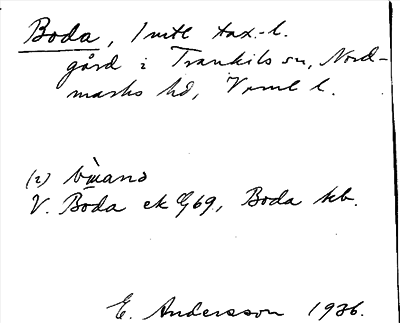 Boda, 1 mtl tax.-l.
gård i Trankils sn, Nord-
marks hd, Vrml l.
(2)
V. Boda ek 69, Boda kb.
E. Andersson 1936.